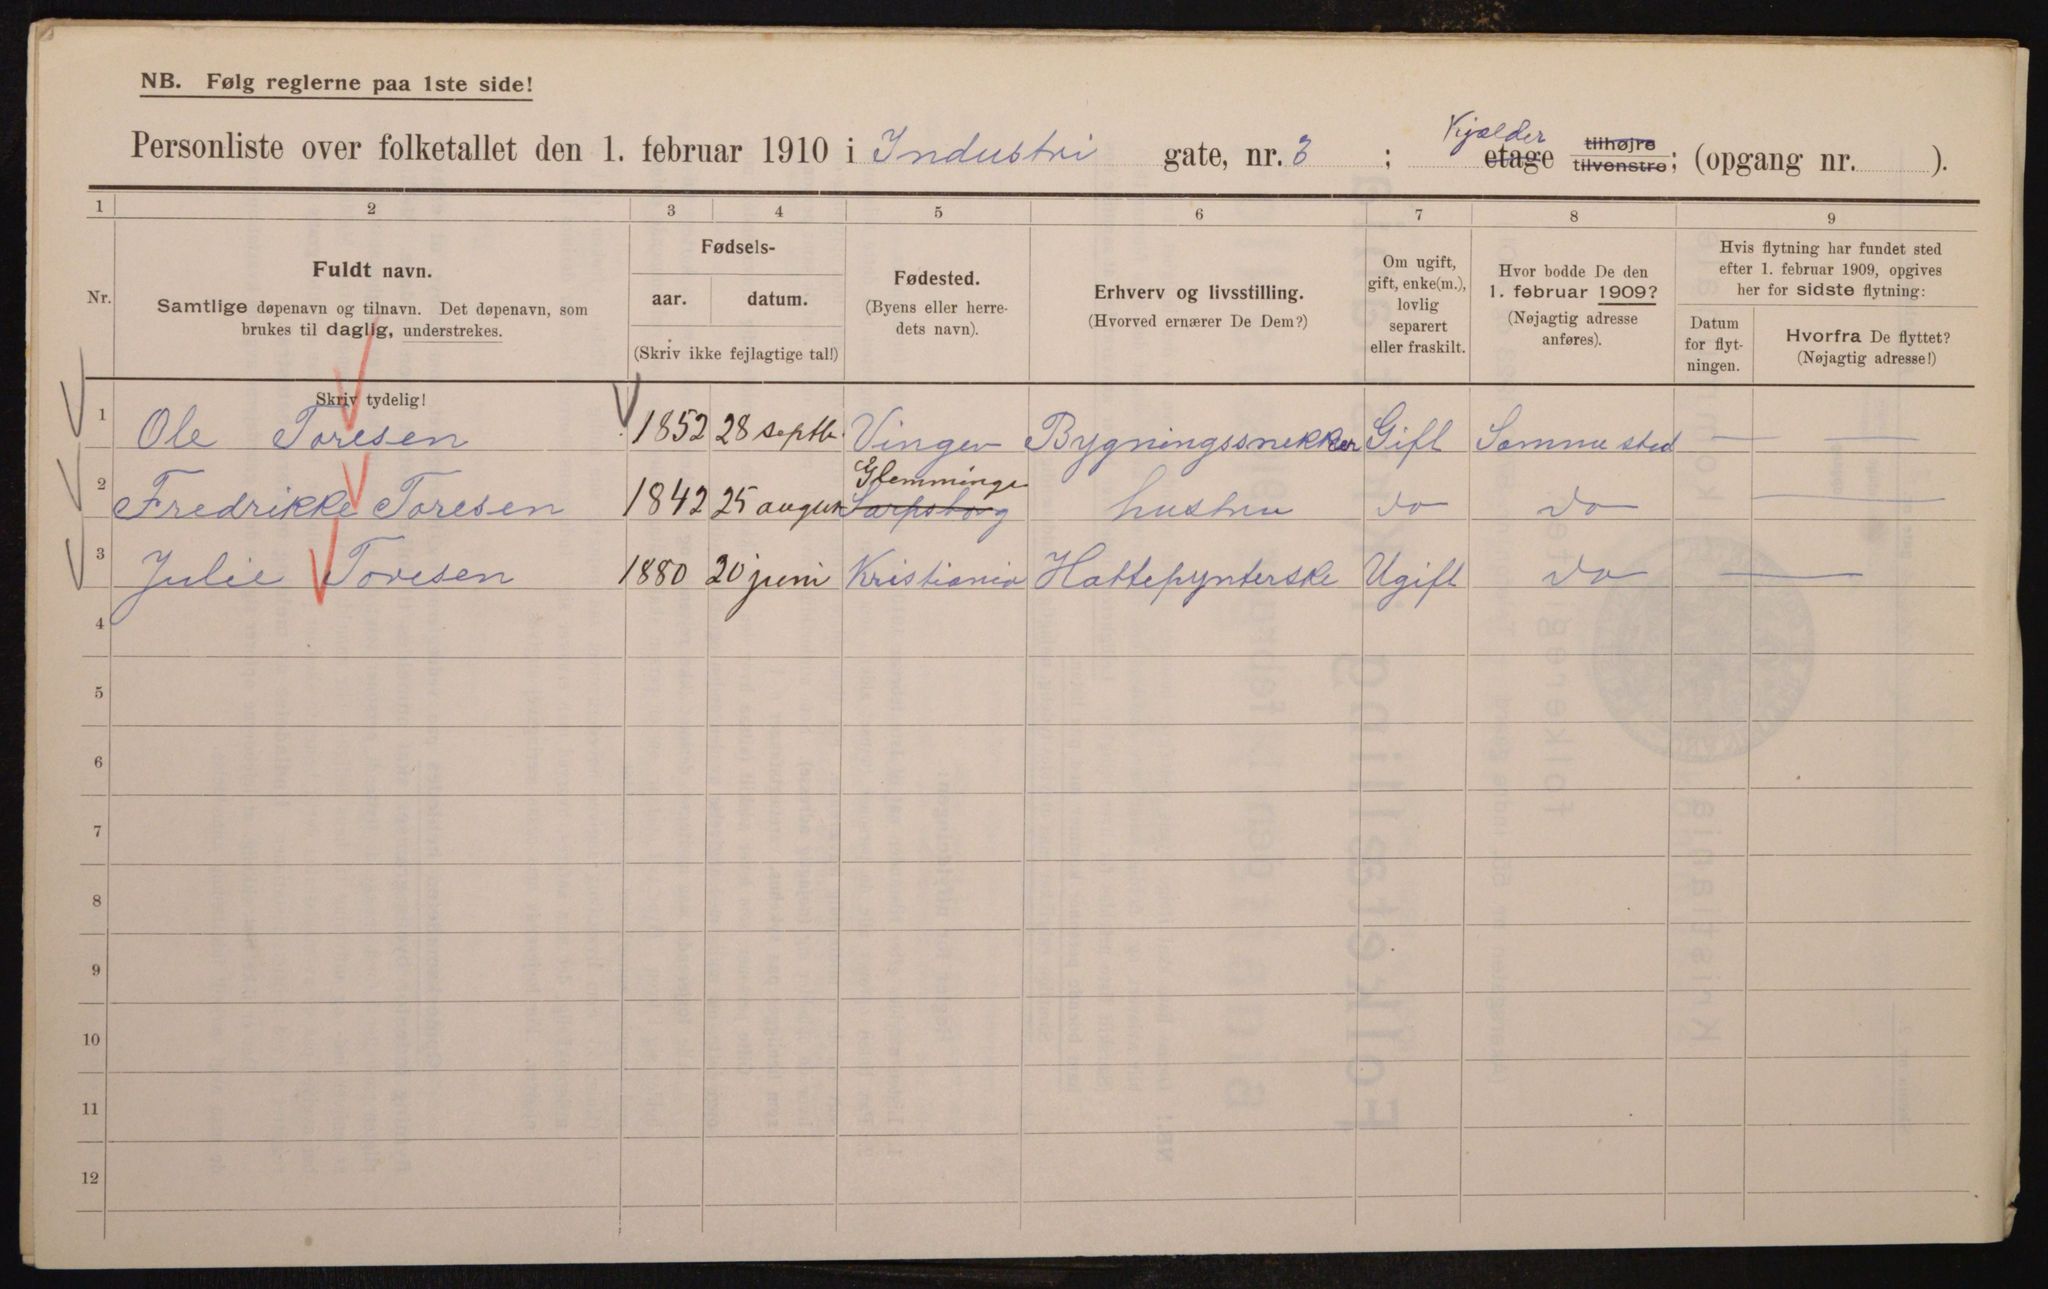 NB. Følg reglerne paa 1ste side!
Personliste over folketallet den 1. februar 1910 i Industri gate, nr. 3 ; Kjælder etage tilhøjre tilvenstre; (opgang nr. ).
1 2 3 4 5 6 7 8 9
Nr.
Fuldt navn.
Samtlige døpenavn og tilnavn. Det døpenavn, som
brukes til daglig, understrekes.
Fødsels-
aar. datum.
(Skriv ikke fejlagtige tal!)
Fødested.
(Byens eller herre-
dets navn).
Erhverv og livsstilling.
(Hvorved ernærer De Dem?)
Om ugift,
gift, enke(m.),
lovlig
separert
eller fraskilt.
Hvor bodde De den
1. februar 1909?
(Nøjagtig adresse
anføres).
Hvis flytning har fundet sted
efter 1. februar 1909, opgives
her for sidste flytning:
Datum
for flyt-
ningen.
Hvorfra De flyttet?
(Nøjagtig adresse!)
Skriv tydelig!
1 Ole Toresen 1852 28 septb. Vinger Bygningssnekker Gift Samme sted — —
Glemminge
2 Fredrikke Toresen 1842 25 august Sarpsborg hustru do do —
3 Julie Toresen 1880 20 juni Kristiania Hattepynterske Ugift do —
4
5
6
7
8
9
10
11
12